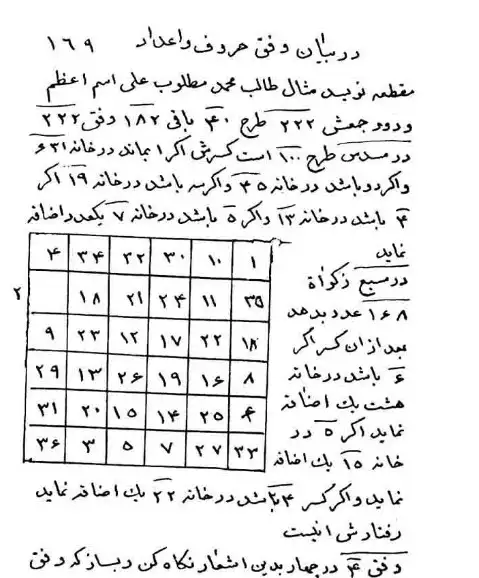 در بیان وفق حروف و اعداد ۱۶۹
مقطعه نویسد مثال طالب محمد مطلوب علی اسم اعظم
ودود جمعش ۲۲۲ طرح ۴۰ باقی ۱۸۲ وفق ۲۲۲
در مسدس طرح ۱۰۰ است کسرش اگر ۱ بماند در خانه ۳۱
واکر دو باشد در خانه ۴۵ واکر سه باشد در خانه ۱۹ اکر
۴ باشد در خانه ۱۳ واکر ۵ باشد در خانه ۷ یکعدد اضافه
نماید
۴ ۳۴ ۲۲ ۳۰ ۱۰ ۱
در مسبع زکواة
۲ ۱۸ ۲۱ ۲۴ ۱۱ ۳۵
۱۶۸ عدد بدهد
۹ ۲۳ ۱۲ ۱۷ ۲۲ ۱۸
بعد ازان کسر اگر
۲۹ ۱۳ ۲۶ ۱۹ ۱۶ ۸
۶ باشد در خانه
هشت یک اضافه
۳۱ ۲۰ ۱۵ ۱۴ ۲۵ ۶
نماید اکر ۵ در
۳۶ ۳ ۵ ۷ ۲۷ ۳۳
خانه ۱۵ یک اضافه
نماید واکر کسر ۴ باشد در خانه ۲۲ یک اضافه نماید
رفتارش اینست
وفق ۴ در چهار بدین اشعار نگاه کن و بساز که وفق